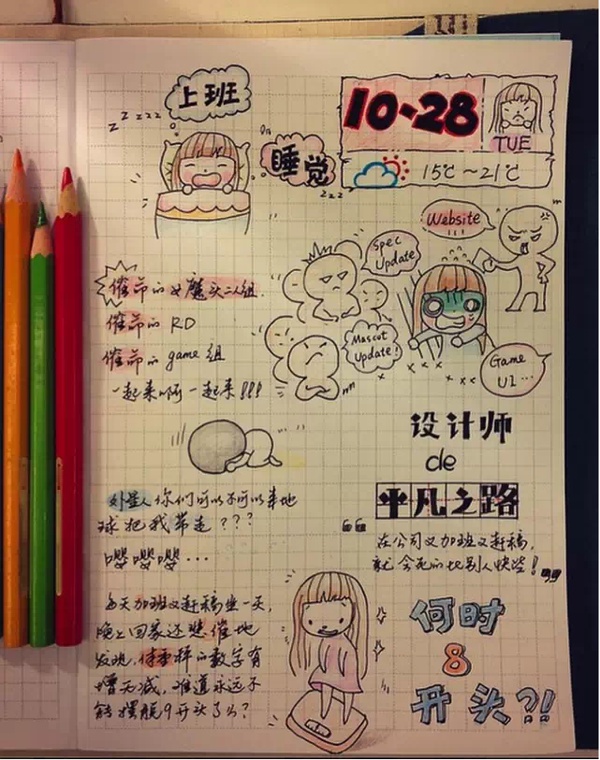 上班
zzzzz
睡觉
zzz
10-28
TUE
15℃~21℃
Website
Spec Update
Mascot Update!
Game UI...
催命的女魔头二人组.
催命的RD
催命的game组
一起来啊一起来!!!
设计师
de
平凡之路
外星人你们可以不可以来地
球把我带走???
嘤嘤嘤...
“在公司又加班又赶稿,
就会死的比别人快些!”
每天加班又赶稿坐一天,
晚上回家还悲催地
发现,体重秤的数字有
增无减,难道永远不
能摆脱9开头了么?
何时
8
开头?!